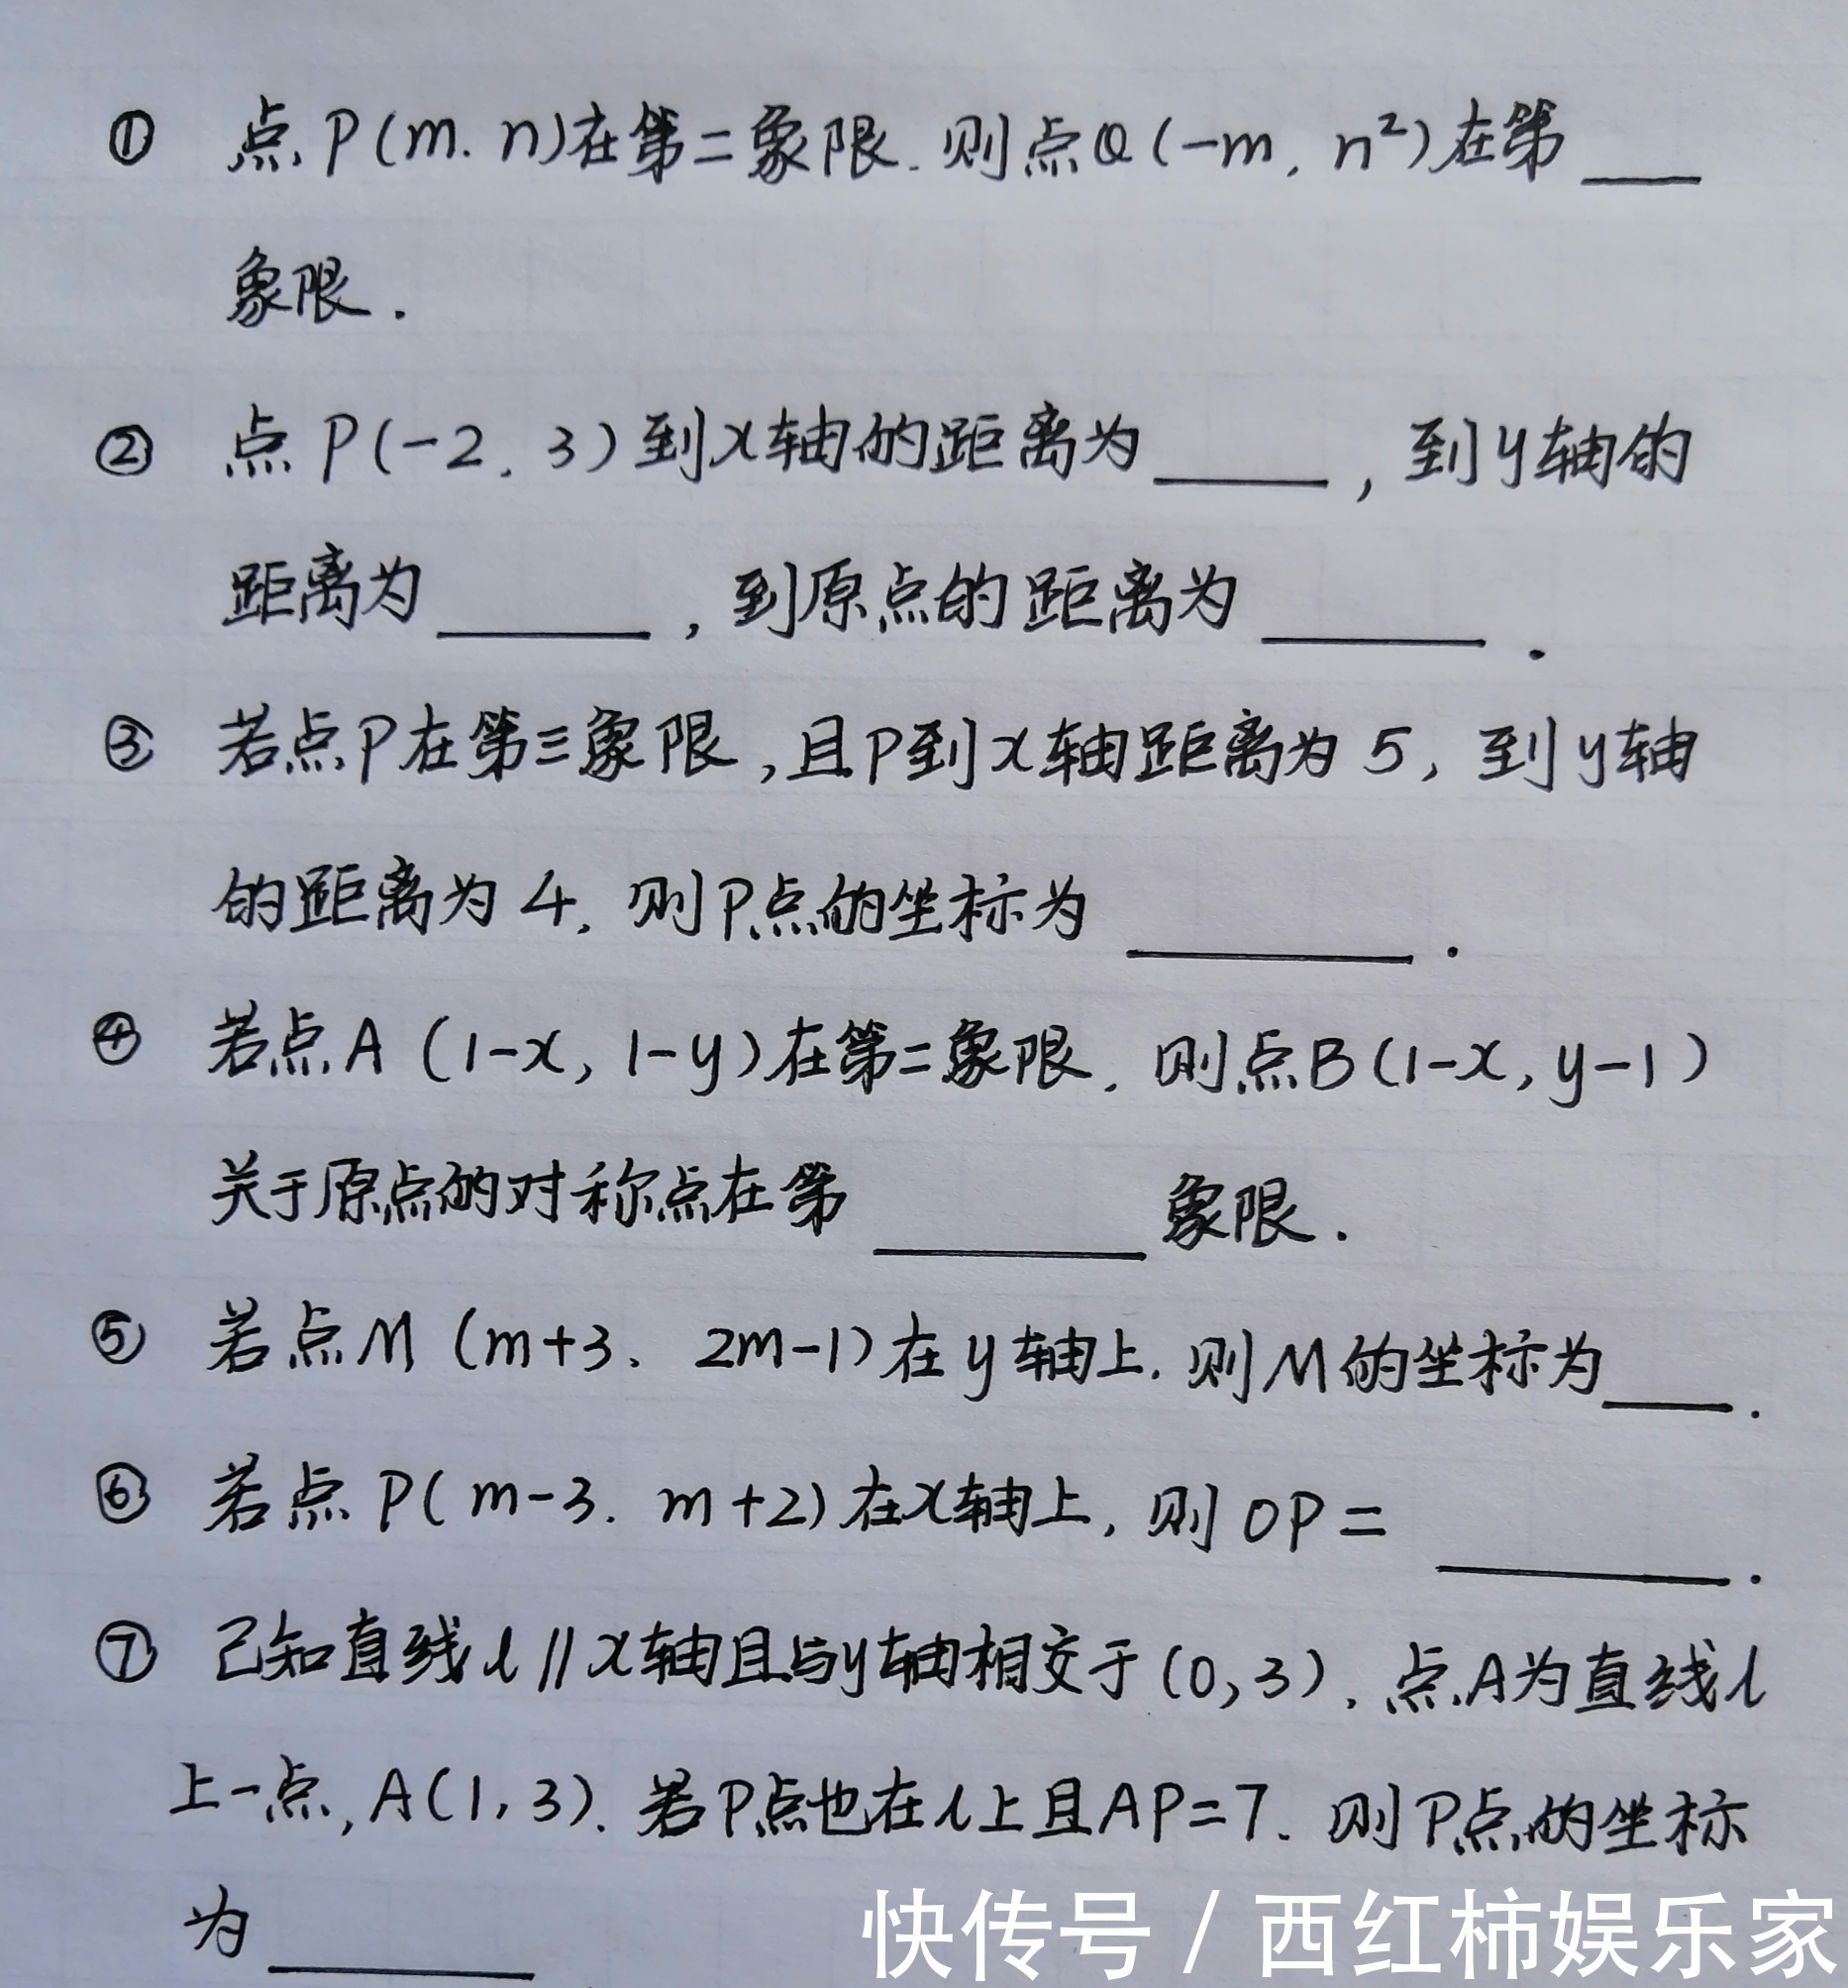 ① 点P(m.n)在第二象限.则点Q(-m,n²)在第___
象限.
② 点P(-2.3)到x轴的距离为____,到y轴的
距离为____,到原点的距离为____.
③ 若点P在第三象限,且P到x轴距离为5,到y轴
的距离为4,则P点的坐标为____.
④ 若点A(1-x,1-y)在第二象限.则点B(1-x,y-1)
关于原点的对称点在第____象限.
⑤ 若点M(m+3、2m-1)在y轴上.则M的坐标为___.
⑥ 若点P(m-3.m+2)在x轴上,则OP=____.
⑦ 己知直线l∥x轴且与y轴相交于(0,3).点A为直线l
上一点,A(1,3).若P点也在l上且AP=7.则P点的坐标
为____.
快传号/西红柿娱乐家